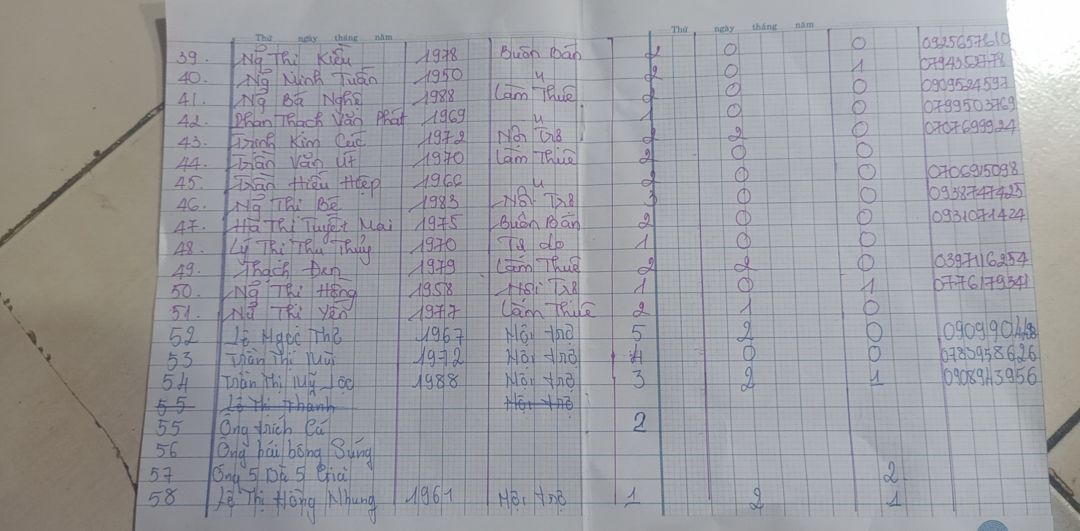 Thứ ngày tháng năm Thứ ngày tháng năm
39. Ng̃ Thị Kiều 1978 Buôn Bán 2 0 0 0925657610
40. Ng̃ Minh Tuấn 1950 " 2 0 1
41. Ng̃ Bá Nghệ 1988 Làm Thuê 2 0 0 0909524597
42. Phan Thạch Văn Phát 1969 " 1 0 0 0799503769
43. Trịnh Kim Cúc 1972 Nội Trợ 2 2 0 0707699924
44. Trần Văn Út 1970 Làm Thuê 2 0 0
45. Trần Hiếu Hiệp 1966 " 2 0 0 0706915098
46. Ng̃ Thị Bé 1983 Nội Trợ 3 0 0 0938747425
47. Hà Thị Tuyết Mai 1975 Buôn Bán 2 0 0 0931071424
48. Lý Thị Thu Thủy 1970 Tự do 1 0 0
49. Thạch Đen 1979 Làm Thuê 2 2 0 0397116254
50. Ng̃ Thị Hồng 1958 Nội Trợ 1 0 1 0776179341
51. Ng̃ Thị Yến 1977 Làm Thuê 2 1 0
52 Lê Ngọc Thơ 1967 Nội trợ 5 2 0
53 Trần Thị Mùi 1972 Nội trợ 4 0 0 0783958626
54 Trần Thị Mỹ Lộc 1988 Nội trợ 3 2 1 0908943956
55 Lê Thị Thanh Nội trợ
55 Ông trích Cá 2
56 Ông hái bông Súng
57 Ông 5 Dà 5 Già 2
58 Lê Thị Hồng Nhung 1961 Nội trợ 1 2 1